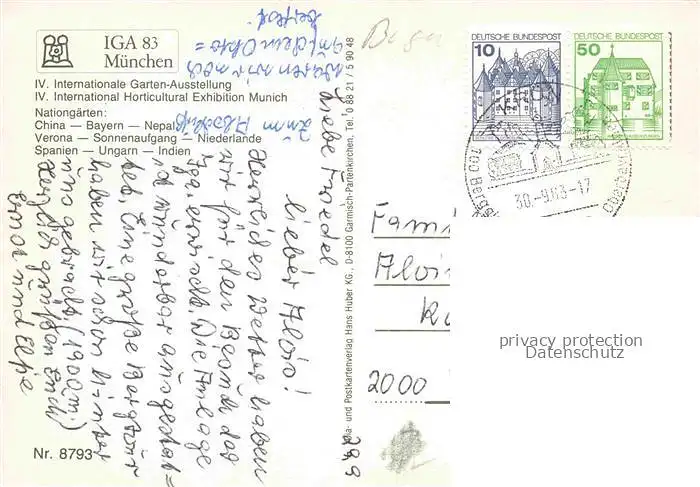 IGA 83
München
IV. Internationale Garten-Ausstellung
IV. International Horticultural Exhibition Munich
Nationgärten:
China — Bayern — Nepal
Verona — Sonnenaufgang — Niederlande
Spanien — Ungarn — Indien
Zum Abschluß
waren wir noch
auf dem Okto=
berfest.
Liebe Friedel
lieber Alois!
Herrliches Wetter haben
wir für den Besuch der
Iga erwischt. Die Anlage
ist wunderbar ausgestat=
tet. Eine große Bergtour
haben wir schon hinter
uns gebracht (1900m)
Herzlich grüßen Euch
Ernst und Elfie
Nr. 8793
- und Postkartenverlag Hans Huber KG., D-8100 Garmisch-Partenkirchen, Tel. 0 88 21 / 5 90 48
29,9
DEUTSCHE BUNDESPOST
10
DEUTSCHE BUNDESPOST
50
30.-9.83-17
Fami
Aloi
2000
privacy protection
Datenschutz